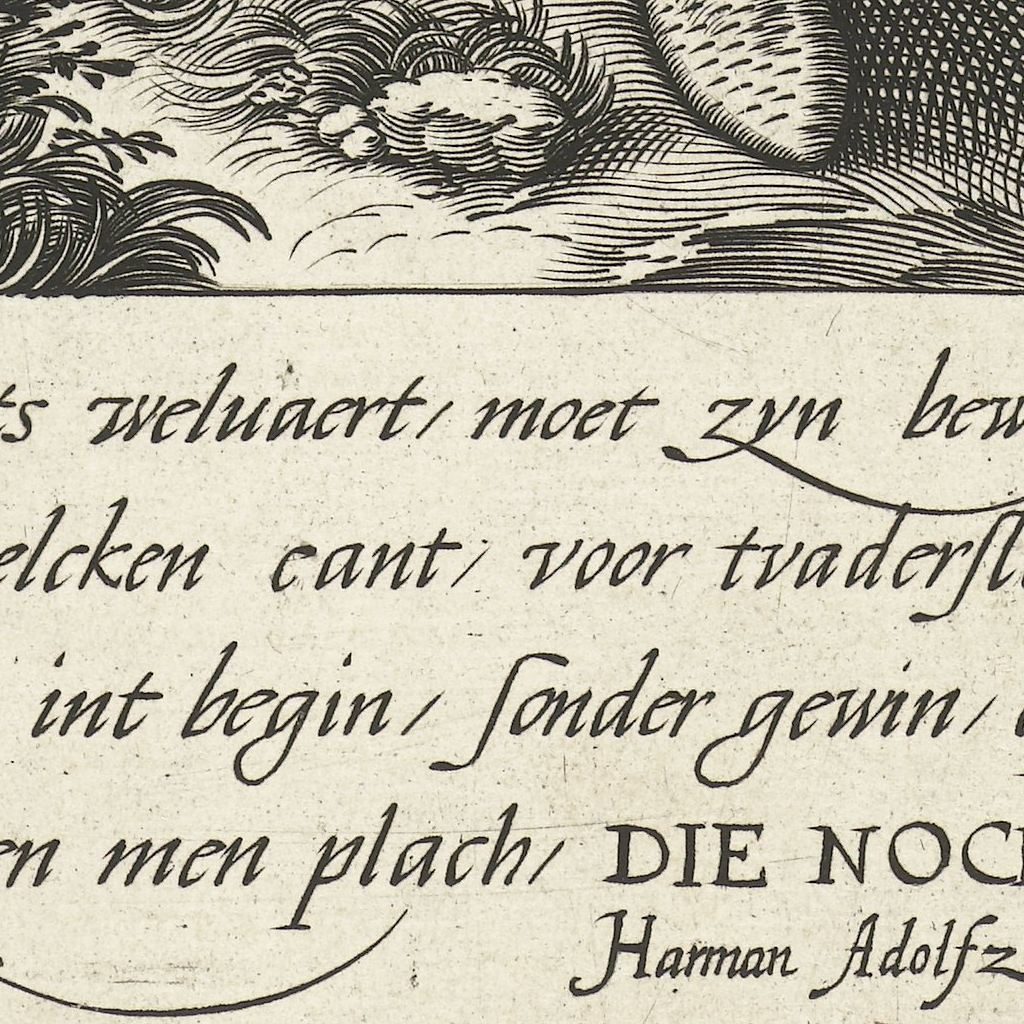 ts weluaert/ moet zyn bew
elcken cant/ voor tvaderſl
int begin/ ſonder gewin/
en men plach/ DIE NOC
Harman Adolfz